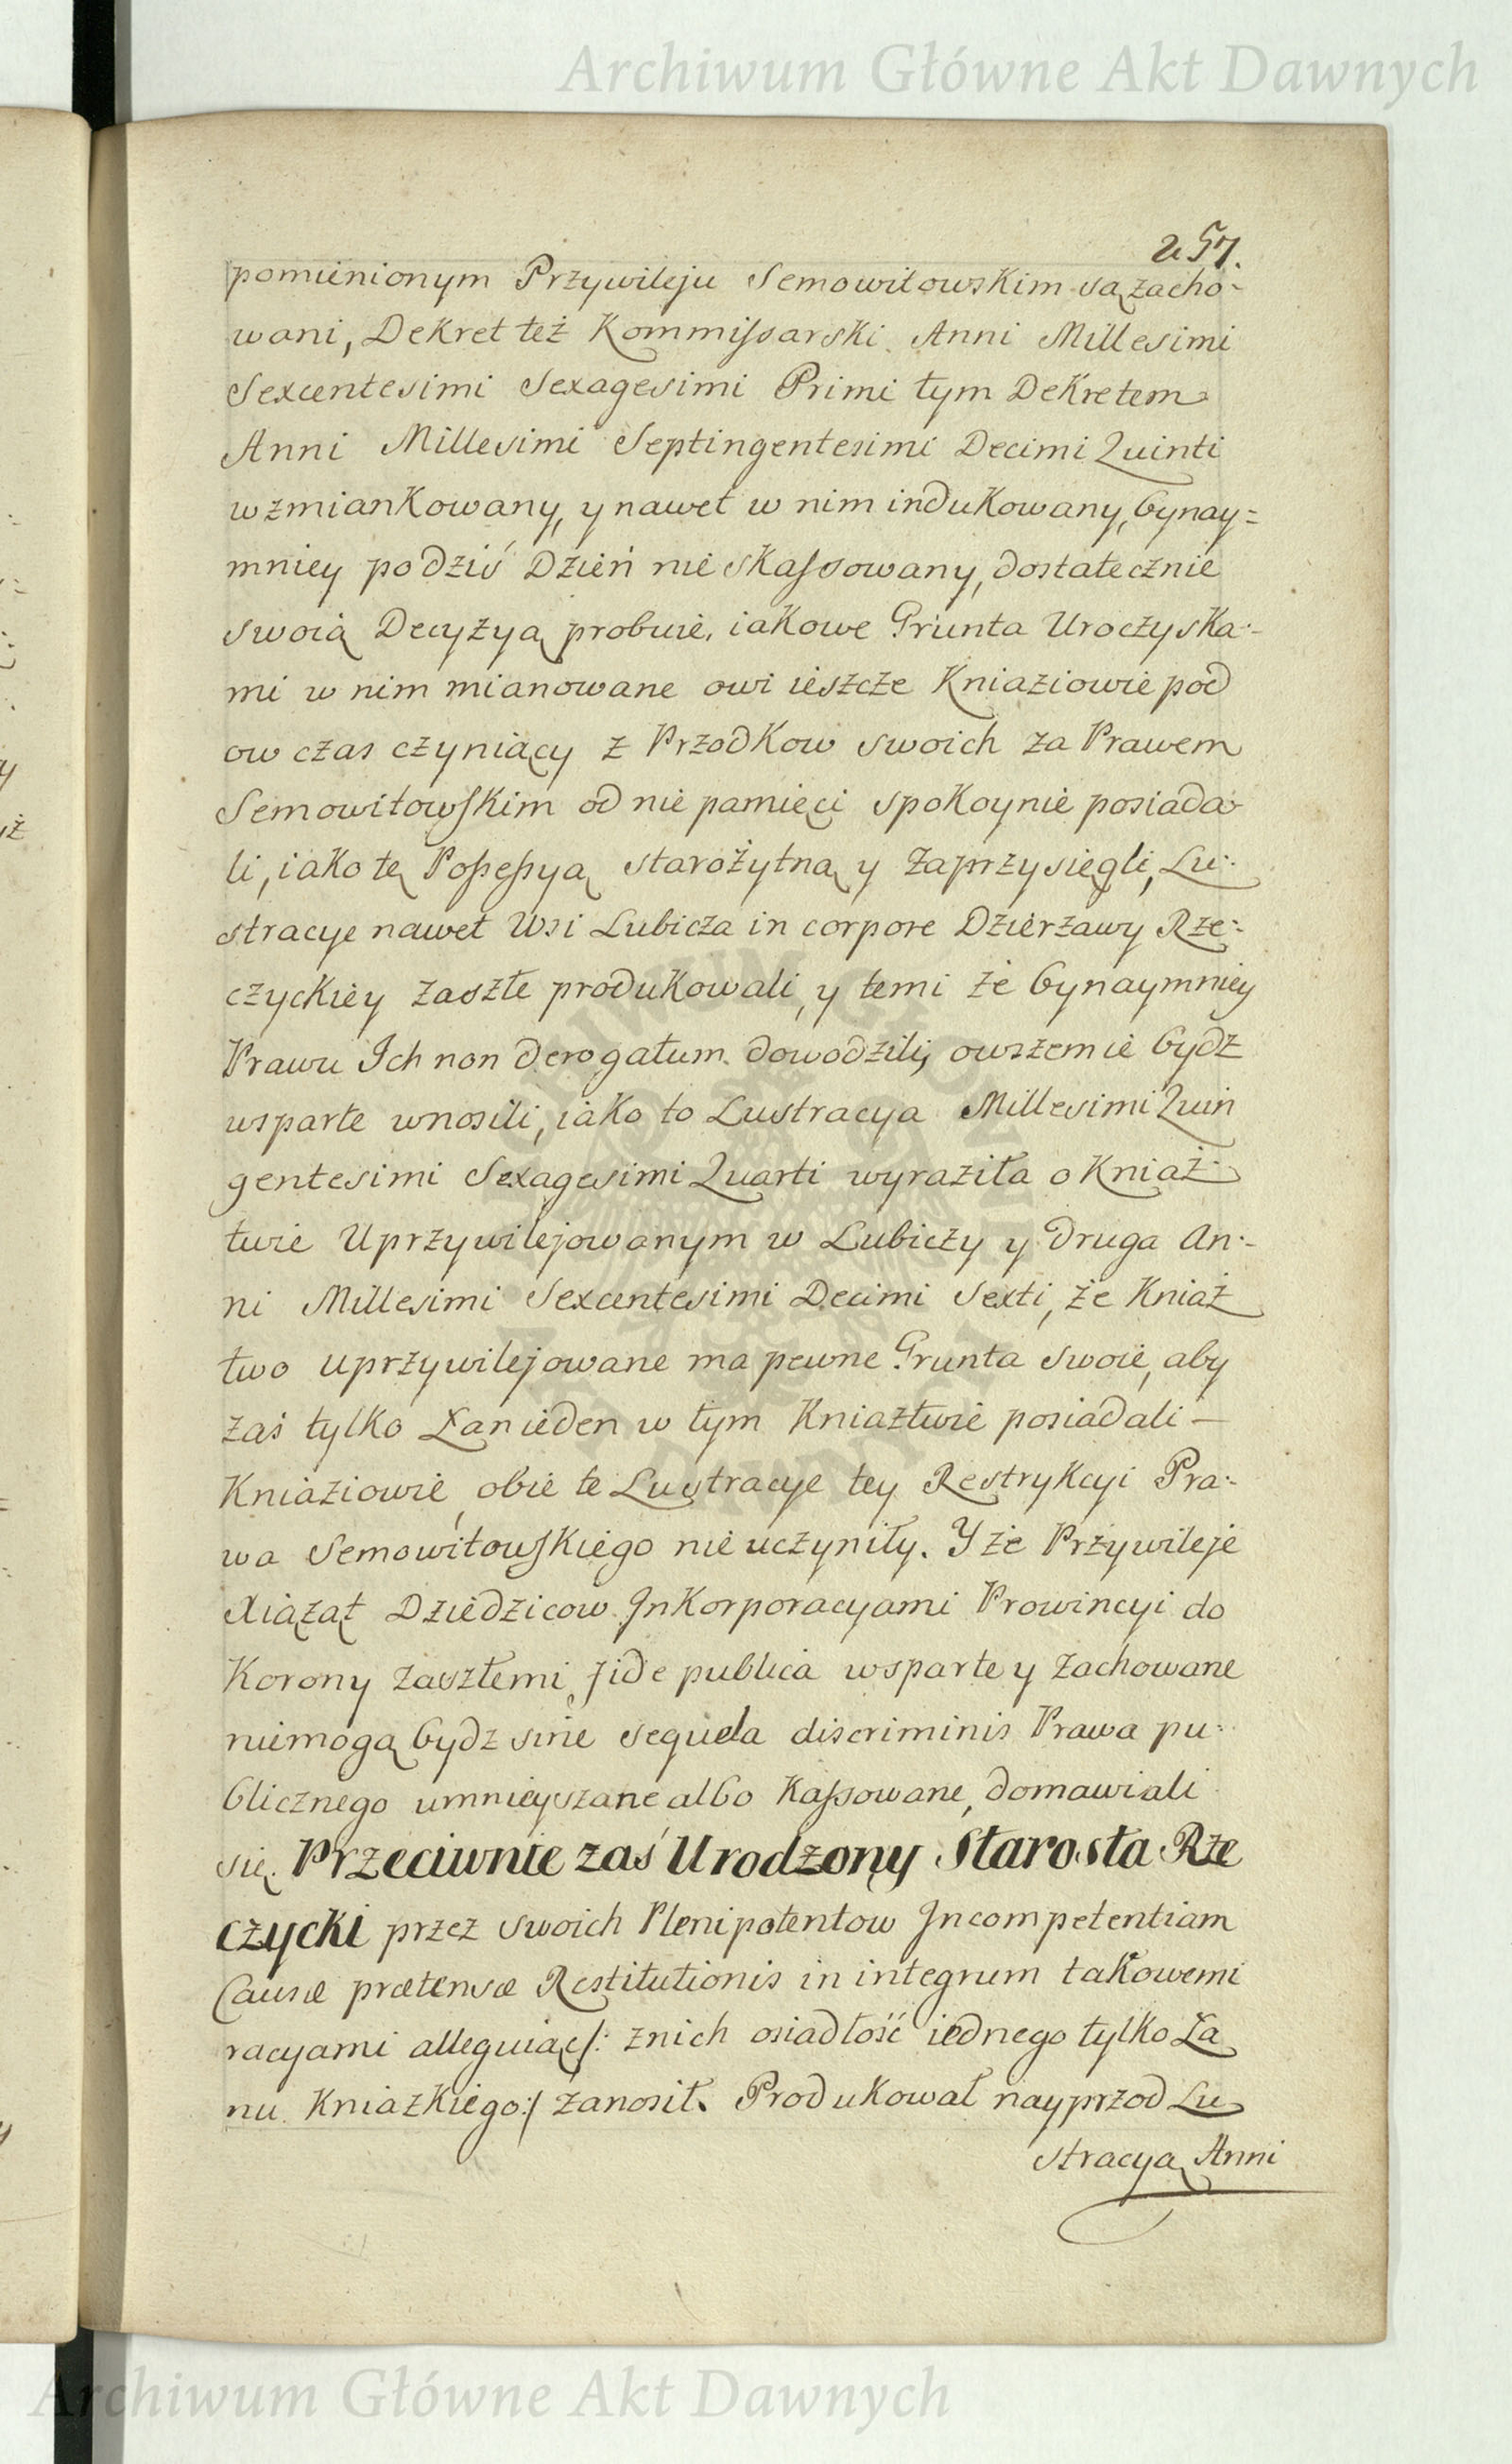 Archiwum Główne Akt Dawnych
257.
pomienionym Przywileju Semowitowskim są zacho-
wani, Dekret też Kommissarski Anni Millesimi
Sexcentesimi Sexagesimi Primi tym Dekretem
Anni Millesimi Septingentesimi Decimi Quinti
wzmiankowany, y nawet w nim indukowany, bynay=
mniey podziś Dzień nie skassowany, dostatecznie
swoią Decyzyą probuie, iakowe Grunta Uroczyska-
mi w nim mianowane owi ieszcze Kniaziowie pod
ow czas czyniący z Przodkow swoich za Prawem
Semowitowskim od nie pamięci spokoynie posiada-
li, iako tę Possessyą starożytną y zaprzysięgli, Lu-
stracye nawet Wsi Lubicza in corpore Dzierżawy Rze-
czyckiey zaszłe produkowali, y temi że bynaymniey
Prawu Ich non derogatum dowodzili, owszem ie bydz
wsparte wnosili, iako to Lustracya Millesimi Quin
gentesimi Sexagesimi Quarti wyraziła o Kniaź-
twie Uprzywilejowanym w Lubiczy y druga An-
ni Millesimi Sexcentesimi Decimi Sexti, że Kniaź
two uprzywilejowane ma pewne Grunta swoie, aby
zaś tylko Łan ieden w tym Kniaztwie posiadali –
Kniaziowie, obie te Lustracye tey Restrykcyi Pra-
wa Semowitowskiego nie uczyniły. Y że Przywileje
Xiążąt Dziedzicow Inkorporacyami Prowincyi do
Korony zaszłemi, fide publica wsparte y zachowane
niemogą bydz sine sequela discriminis Prawa pu-
blicznego umnieyszane albo kassowane, domawiali
się. Przeciwnie zaś Urodzony Starosta Rze
czycki przez swoich Plenipotentow Incompetentiam
Causæ prætensæ Restitutionis in integrum takowemi
racyami alleguiąc /: znich osiadłość iednego tylko Ła
nu Kniazkiego :/ zanosił. Produkował nayprzod Lu
stracyą Anni
Archiwum Główne Akt Dawnych